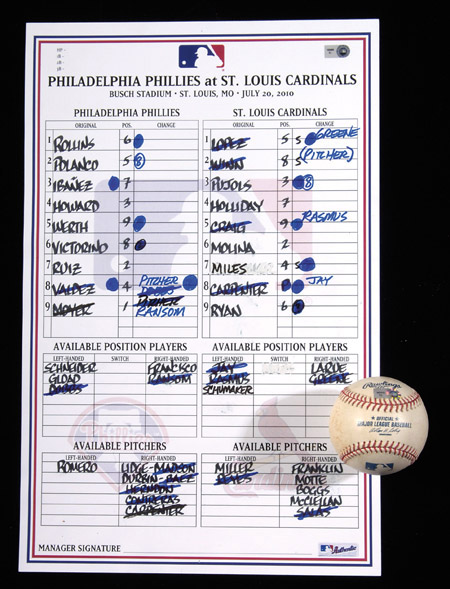 PHILADELPHIA PHILLIES at ST. LOUIS CARDINALS
BUSCH STADIUM • ST. LOUIS, MO • JULY 20, 2010
PHILADELPHIA PHILLIES
ORIGINAL POS. CHANGE
1 ROLLINS 6
2 POLANCO 5 8
3 IBAÑEZ 7
4 HOWARD 3
5 WERTH 9
6 VICTORINO 8
7 RUIZ 2
8 VALDEZ 4 PITCHER DOBBS
9 MOYER 1 PITCHER RANSOM
ST. LOUIS CARDINALS
ORIGINAL POS. CHANGE
1 LOPEZ 5 5 GREENE
2 WINN 8 5 (PITCHER)
3 PUJOLS 3 8
4 HOLLIDAY 7
5 CRAIG 9 RASMUS
6 MOLINA 2
7 MILES 4 5
8 CARPENTER JAY
9 RYAN 6
AVAILABLE POSITION PLAYERS
LEFT-HANDED SWITCH RIGHT-HANDED
SCHNEIDER FRANCISCO
GLOAD RANSOM
DOBBS
AVAILABLE POSITION PLAYERS
LEFT-HANDED SWITCH RIGHT-HANDED
JAY LARUE
RASMUS GREENE
SCHUMAKER
AVAILABLE PITCHERS
LEFT-HANDED RIGHT-HANDED
ROMERO LIDGE MADSON
DURBIN BAEZ
HERNDON
CONTRERAS
CARPENTER
AVAILABLE PITCHERS
LEFT-HANDED RIGHT-HANDED
MILLER FRANKLIN
REYES MOTTE
BOGGS
MCCLELLAN
SALAS
MANAGER SIGNATURE
Authentic
Rawlings
OFFICIAL
MAJOR LEAGUE BASEBALL